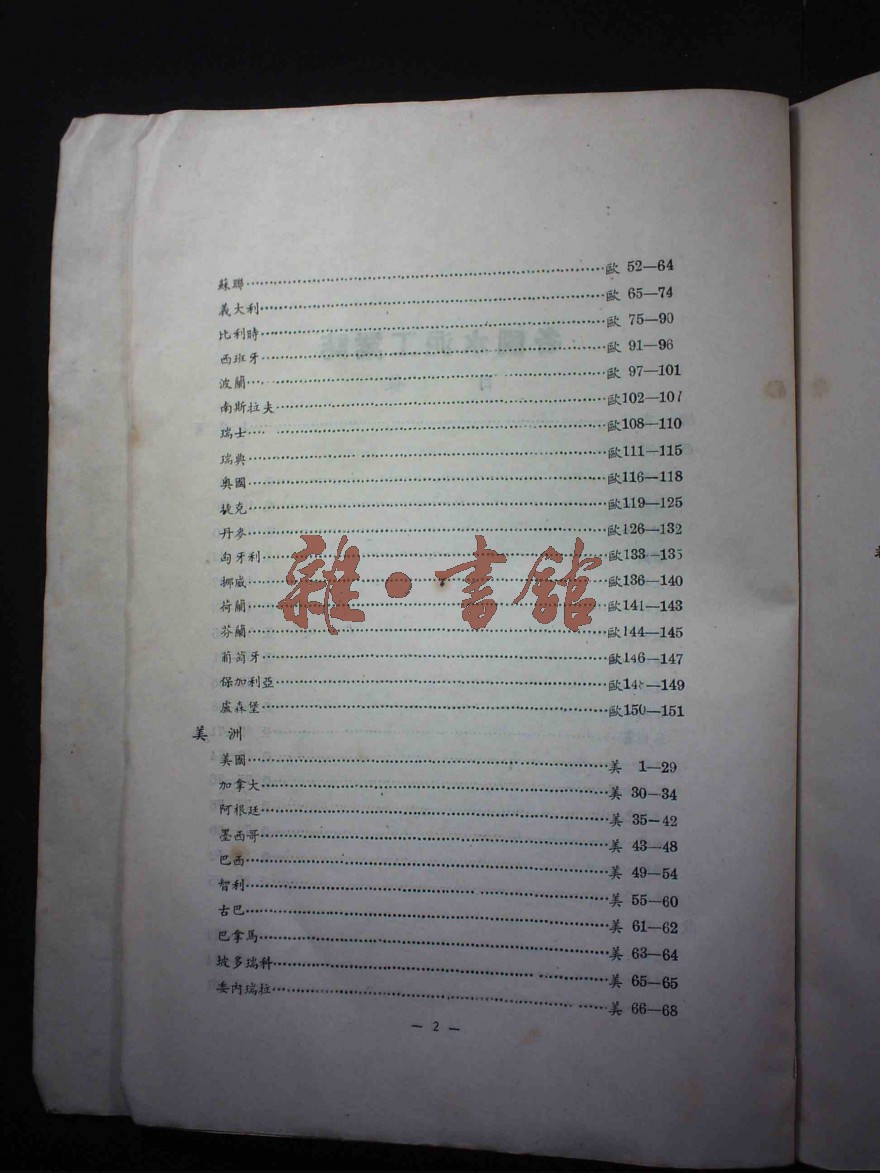 蘇聯…歐 52—64
義大利…歐 65—74
比利時…歐 75—90
西班牙…歐 91—96
波蘭…歐 97—101
南斯拉夫…歐102—107
瑞士…歐108—110
瑞典…歐111—115
奧國…歐116—118
捷克…歐119—125
丹麥…歐126—132
匈牙利…歐133—135
挪威…歐136—140
荷蘭…歐141—143
芬蘭…歐144—145
葡萄牙…歐146—147
保加利亞…歐148—149
盧森堡…歐150—151
美洲
美國…美 1—29
加拿大…美 30—34
阿根廷…美 35—42
墨西哥…美 43—48
巴西…美 49—54
智利…美 55—60
古巴…美 61—62
巴拿馬…美 63—64
坡多瑞科…美 65—65
委內瑞拉…美 66—68
— 2 —
雜·書館